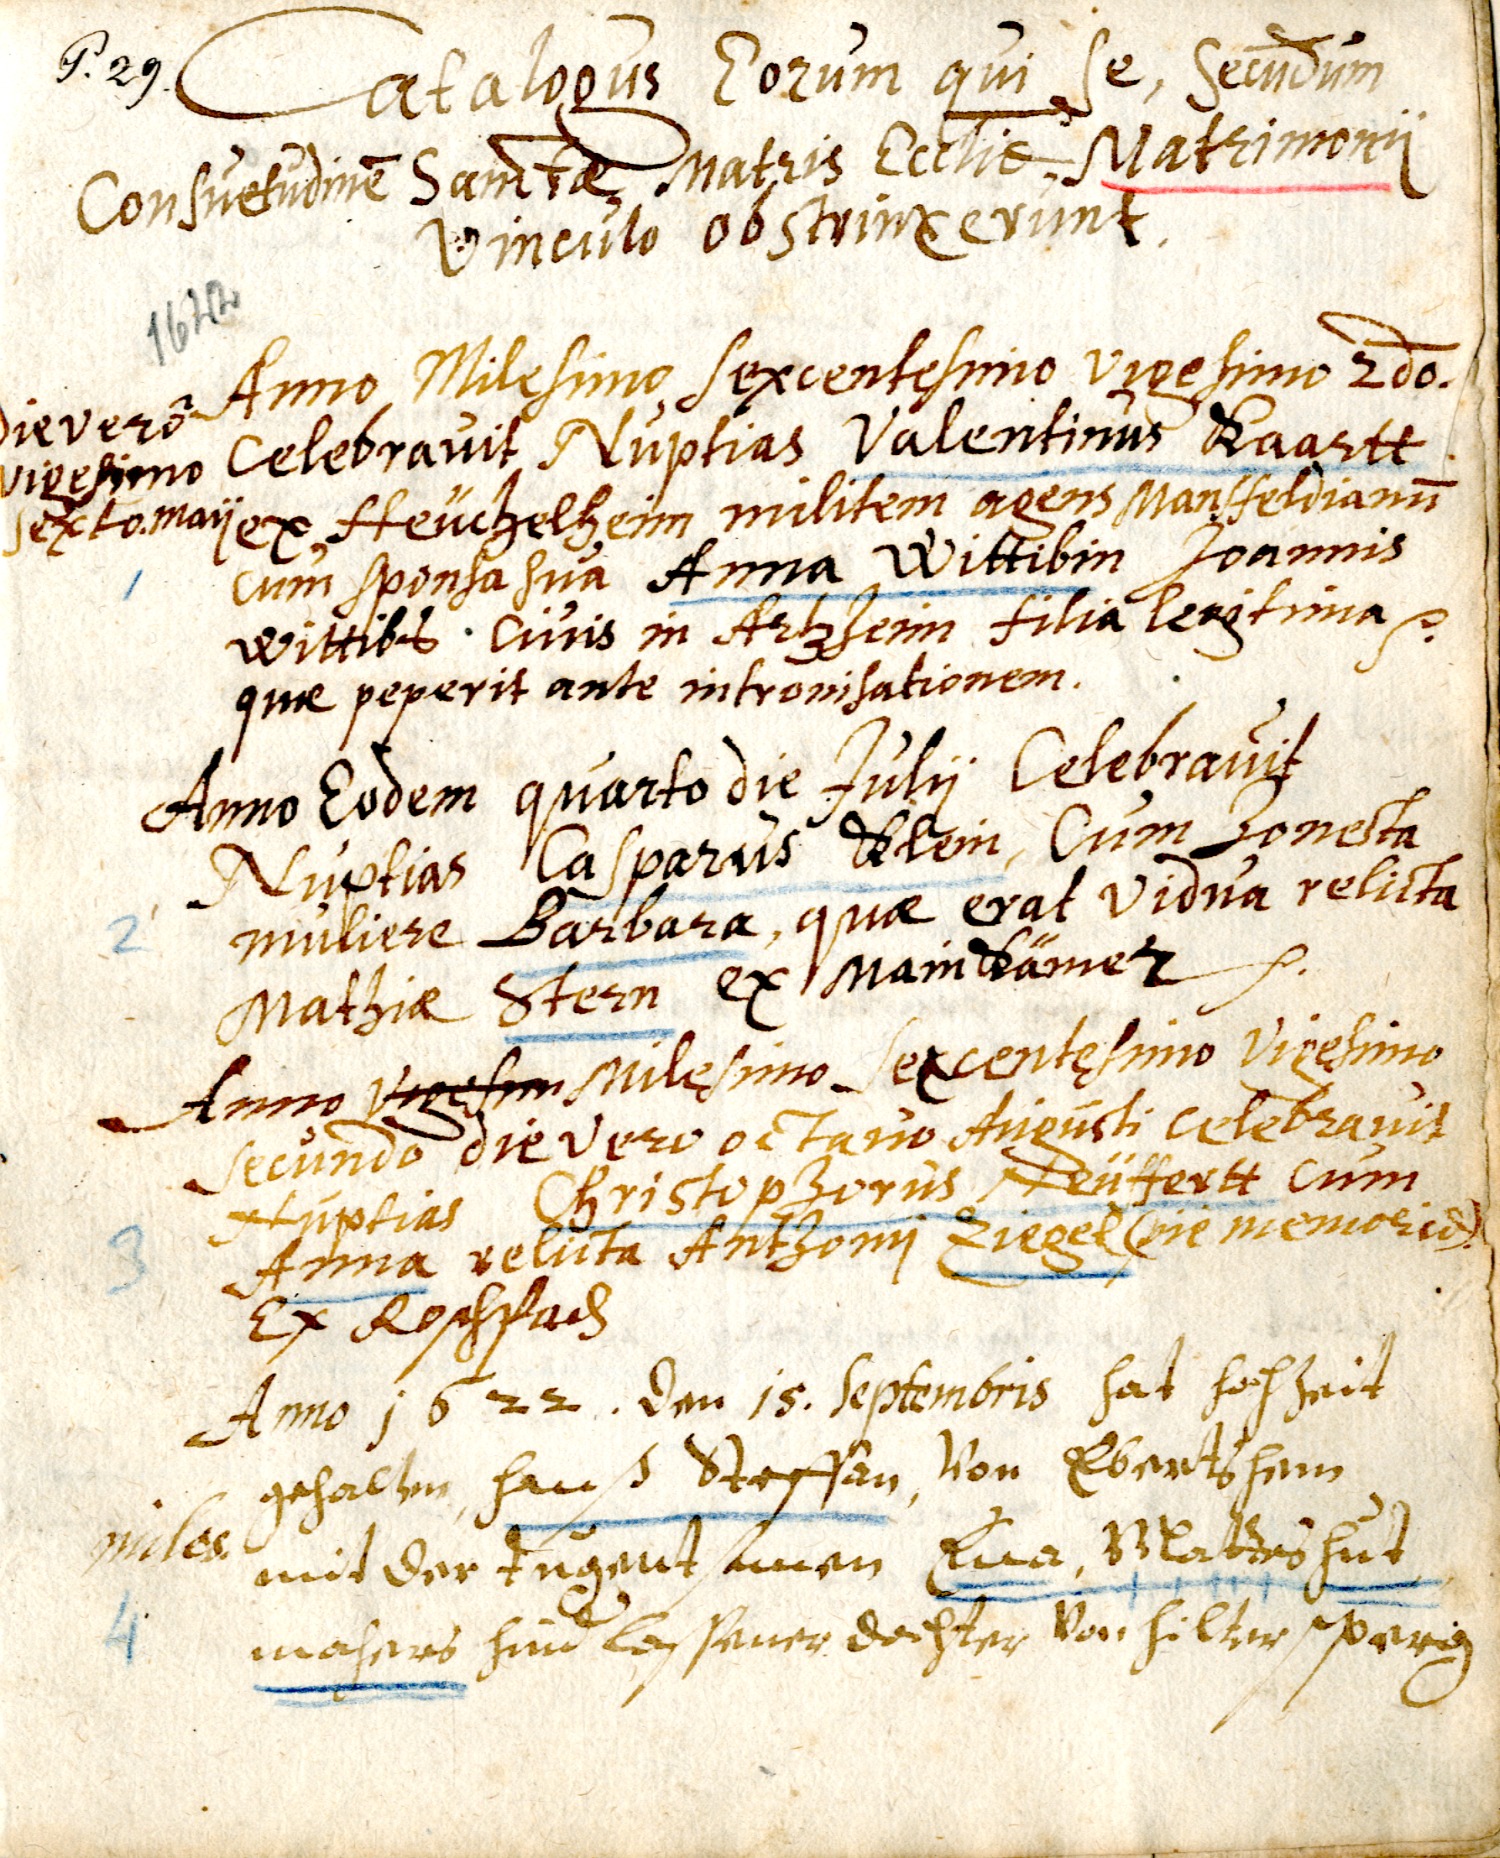 P. 29.
Catalogus Eorum qui se, secūdum
Consuetudinē Sanctæ Matris Ecclīe Matrimonij
vinculo obstrinxerunt.
1622
Anno Milesimo sexcentesimo vigesimo 2do.
Die vero
vigesimo
sexto. maij
Celebravit Nuptias Valentinus Kaartt
ex Heüchelheim militem agens Mansfeldianū
1
cum sponsa sua Anna Wittibin Joannis
Wittibs. Civis in Artzheim filia legitima
quæ peperit ante intronisationem.
Anno Eodem quarto die Julij Celebravit
Nuptias Casparus Klein, Cum honesta
2
muliere Barbara, quæ erat vidua relicta
Mathiæ Stern ex Mainkämer
Anno Milesimo sexcentesimo vigesimo
secundo die vero octavo Augusti celebravit
Nuptias Christophorus Neüffertt cum
3
Anna relicta Anthonij Ziegel (pie memoriæ).
Ex Roschpach
Anno 1622. den 15. Septembris hat hochzeit
gehalten, hanß Steffan, von Ebertshem
miles.
mit der tugentsamen Eua, Mattes hut
4
machers hind lassener dochter von hilterspverg